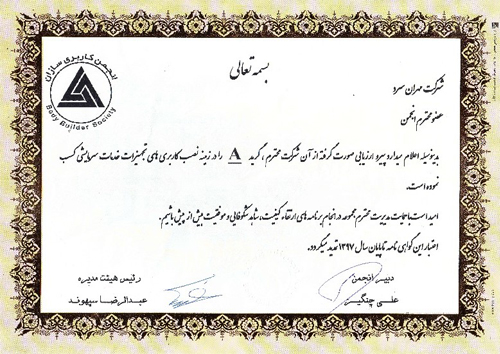 بسمه تعالی
انجمن کاربری سازان
Body Builder Society
شرکت مهران سرد
عضو محترم انجمن
بدینوسیله اعلام میدارد پیرو ارزیابی صورت گرفته از آن شرکت محترم، گرید A را در زمینه نصب کاربری های تجهیزات خدمات سرمایشی کسب
نموده است.
امید است با حمایت مدیریت محترم مجموعه در انجام برنامه های ارتقاء کیفیت، شاهد شکوفایی و موفقیت بیش از پیش باشیم.
اعتبار این گواهی نامه تا پایان سال ۱۳۹۷ تمدید میگردد.
دبیر انجمن
علی چنگیز
رئیس هیئت مدیره
عبدالرضا سپهوند